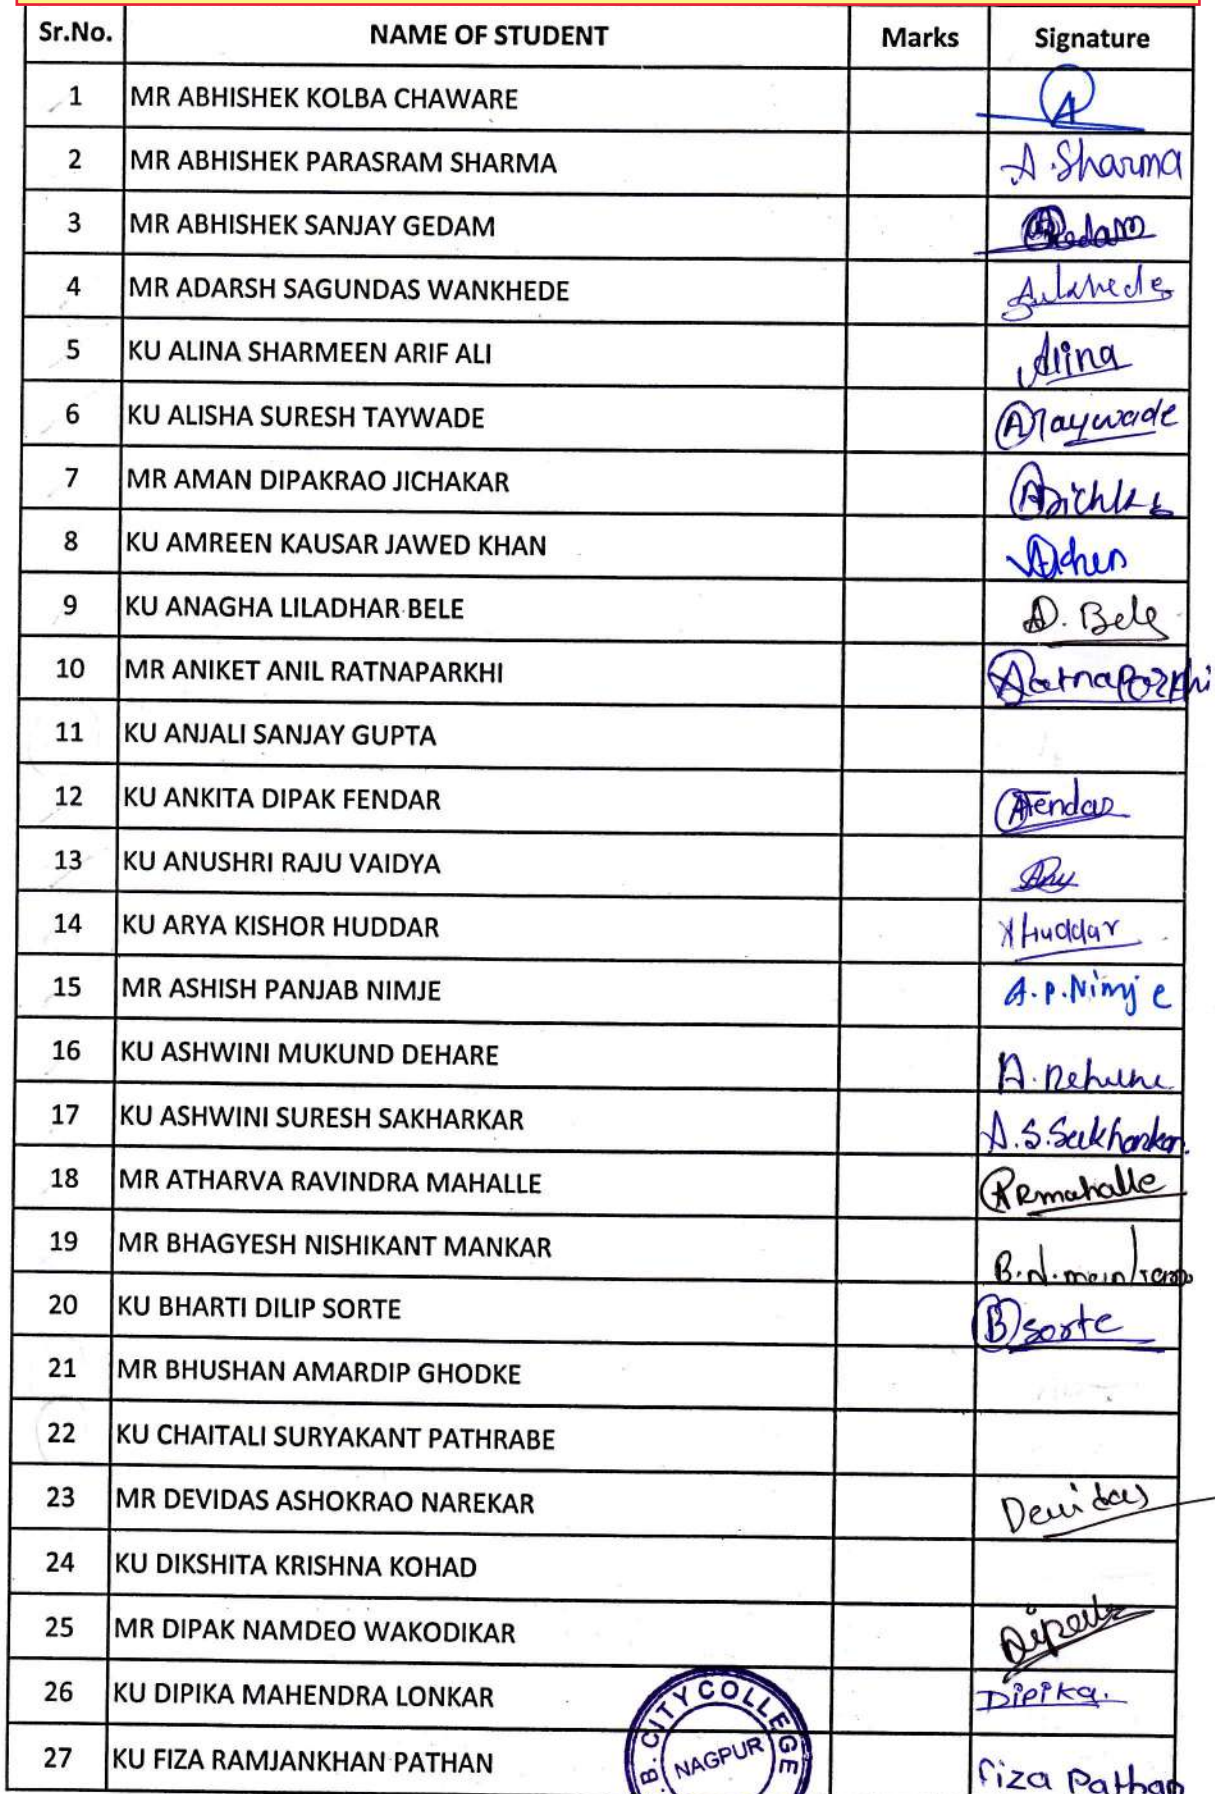 Sr.No. NAME OF STUDENT Marks Signature
1 MR ABHISHEK KOLBA CHAWARE A
2 MR ABHISHEK PARASRAM SHARMA A.Sharma
3 MR ABHISHEK SANJAY GEDAM Gedam
4 MR ADARSH SAGUNDAS WANKHEDE
5 KU ALINA SHARMEEN ARIF ALI Alina
6 KU ALISHA SURESH TAYWADE A Taywade
7 MR AMAN DIPAKRAO JICHAKAR
8 KU AMREEN KAUSAR JAWED KHAN
9 KU ANAGHA LILADHAR BELE A. Bele
10 MR ANIKET ANIL RATNAPARKHI
11 KU ANJALI SANJAY GUPTA
12 KU ANKITA DIPAK FENDAR A Fendar
13 KU ANUSHRI RAJU VAIDYA Anu
14 KU ARYA KISHOR HUDDAR Huddar
15 MR ASHISH PANJAB NIMJE A.P.Nimje
16 KU ASHWINI MUKUND DEHARE A.
17 KU ASHWINI SURESH SAKHARKAR A.S.Sakharkar
18 MR ATHARVA RAVINDRA MAHALLE ARmahalle
19 MR BHAGYESH NISHIKANT MANKAR B.N.
20 KU BHARTI DILIP SORTE B sorte
21 MR BHUSHAN AMARDIP GHODKE
22 KU CHAITALI SURYAKANT PATHRABE
23 MR DEVIDAS ASHOKRAO NAREKAR Devidas
24 KU DIKSHITA KRISHNA KOHAD
25 MR DIPAK NAMDEO WAKODIKAR Dipak
26 KU DIPIKA MAHENDRA LONKAR Dipika.
27 KU FIZA RAMJANKHAN PATHAN Fiza Pathan
B. CITY COLLEGE
NAGPUR